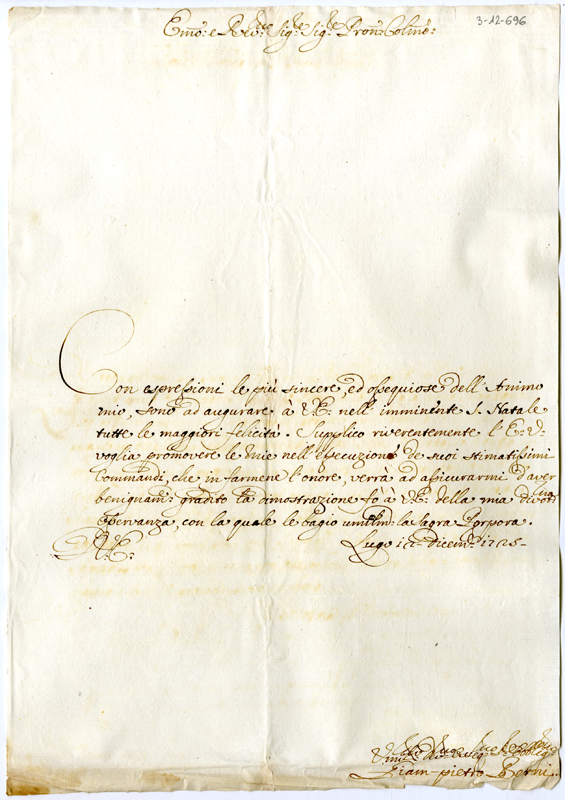 3-12-696
Emo: e Revo: Sigre: Sigre: Pron: Colmo:
Con espressioni le più sincere, ed ossequiose dell'Animo
mio, sono ad augurare à V.E: nell'imminente S. Natale
tutte le maggiori felicità. Supplico riverentemente l'E: V:
voglia promovere le mie nell'essecuzione de suoi stimatissimi
Commandi, che in farmene l'onore, verrà ad assicurarmi d'aver
benignamte: gradito la dimostrazione fò à V.E: della mia divotissima
osservanza, con la quale le bagio umilmte la Sagra Porpora.
V: E:
Lugo dicembre 1725-
Giam-pietro Berni